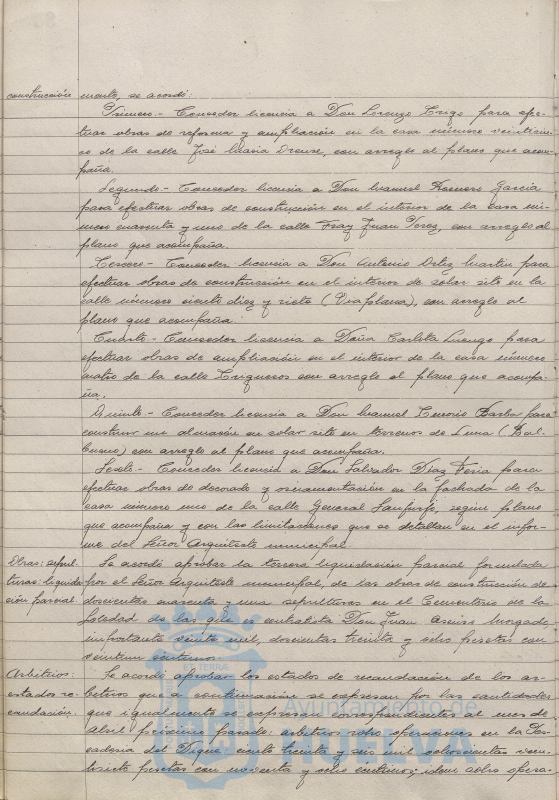 construcción mento, se acordó:
Primero.- Conceder licencia a Don Lorenzo Trigo para efec-
tuar obras de reforma y ampliación en la casa número veinticin-
co de la calle José María Orense, con arreglo al plano que acom-
paña.
Segundo.- Conceder licencia a Don Manuel Romero García
para efectuar obras de construcción en el interior de la casa nú-
mero cuarenta y uno de la calle Fray Juan Perez, con arreglo al
plano que acompaña.
Tercero.- Conceder licencia a Don Antonio Ortiz Martin para
efectuar obras de construcción en el interior de solar sito en la
calle número ciento diez y siete (Viaplana), con arreglo al
plano que acompaña.
Cuarto.- Conceder licencia a Doña Carlota Luengo para
efectuar obras de ampliación en el interior de la casa número
cuatro de la calle Trigueros con arreglo al plano que acompa-
ña.
Quinto.- Conceder licencia a Don Manuel Tenorio Barba para
construir un almacén en solar sito en terrenos de Luna (Bal-
bueno) con arreglo al plano que acompaña.
Sexto.- Conceder licencia a Don Salvador Diaz Feria para
efectuar obras de decorado y ornamentación en la fachada de la
casa número uno de la calle General Sanjurjo, según plano
que acompaña y con las limitaciones que se detallan en el infor-
me del Señor Arquitecto municipal.
Obras: sepul- Se acordó aprobar la tercera liquidación parcial formulada
turas: liquida- por el Señor Arquitecto municipal, de las obras de construcción de
ción parcial. doscientas cuarenta y una sepulturas en el Cementerio de la
Soledad de las que es contratista Don Juan Morgado,
importante veinte mil, doscientas treinta y ocho pesetas con
veintiun centimos.
Arbitrios: Se acordó aprobar los estados de recaudación de los ar-
estados re- bitrios que a continuación se expresan por las cantidades
caudación. que igualmente se expresan correspondientes al mes de
abril próximo pasado: arbitrios sobre operaciones en la Pes-
cadería del Dique, ciento treinta y seis mil ochocientas vein-
tisiete pesetas con noventa y ocho céntimos; idem sobre opera-
Ayuntamiento de
HUELVA